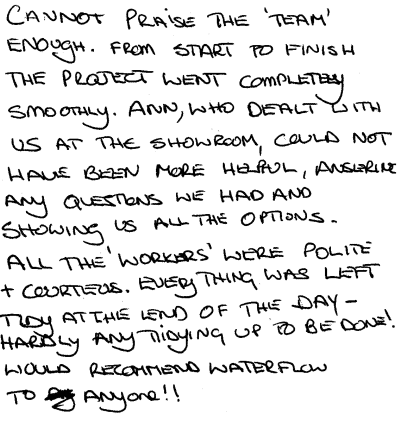 CANNOT PRAISE THE 'TEAM'
ENOUGH. FROM START TO FINISH
THE PROJECT WENT COMPLETELY
SMOOTHLY. ANN, WHO DEALT WITH
US AT THE SHOWROOM, COULD NOT
HAVE BEEN MORE HELPFUL, ANSWERING
ANY QUESTIONS WE HAD AND
SHOWING US ALL THE OPTIONS.
ALL THE 'WORKERS' WERE POLITE
+ COURTEOUS. EVERYTHING WAS LEFT
TIDY AT THE END OF THE DAY –
HARDLY ANY TIDYING UP TO BE DONE!
WOULD RECOMMEND WATERFLOW
TO ANYONE!!